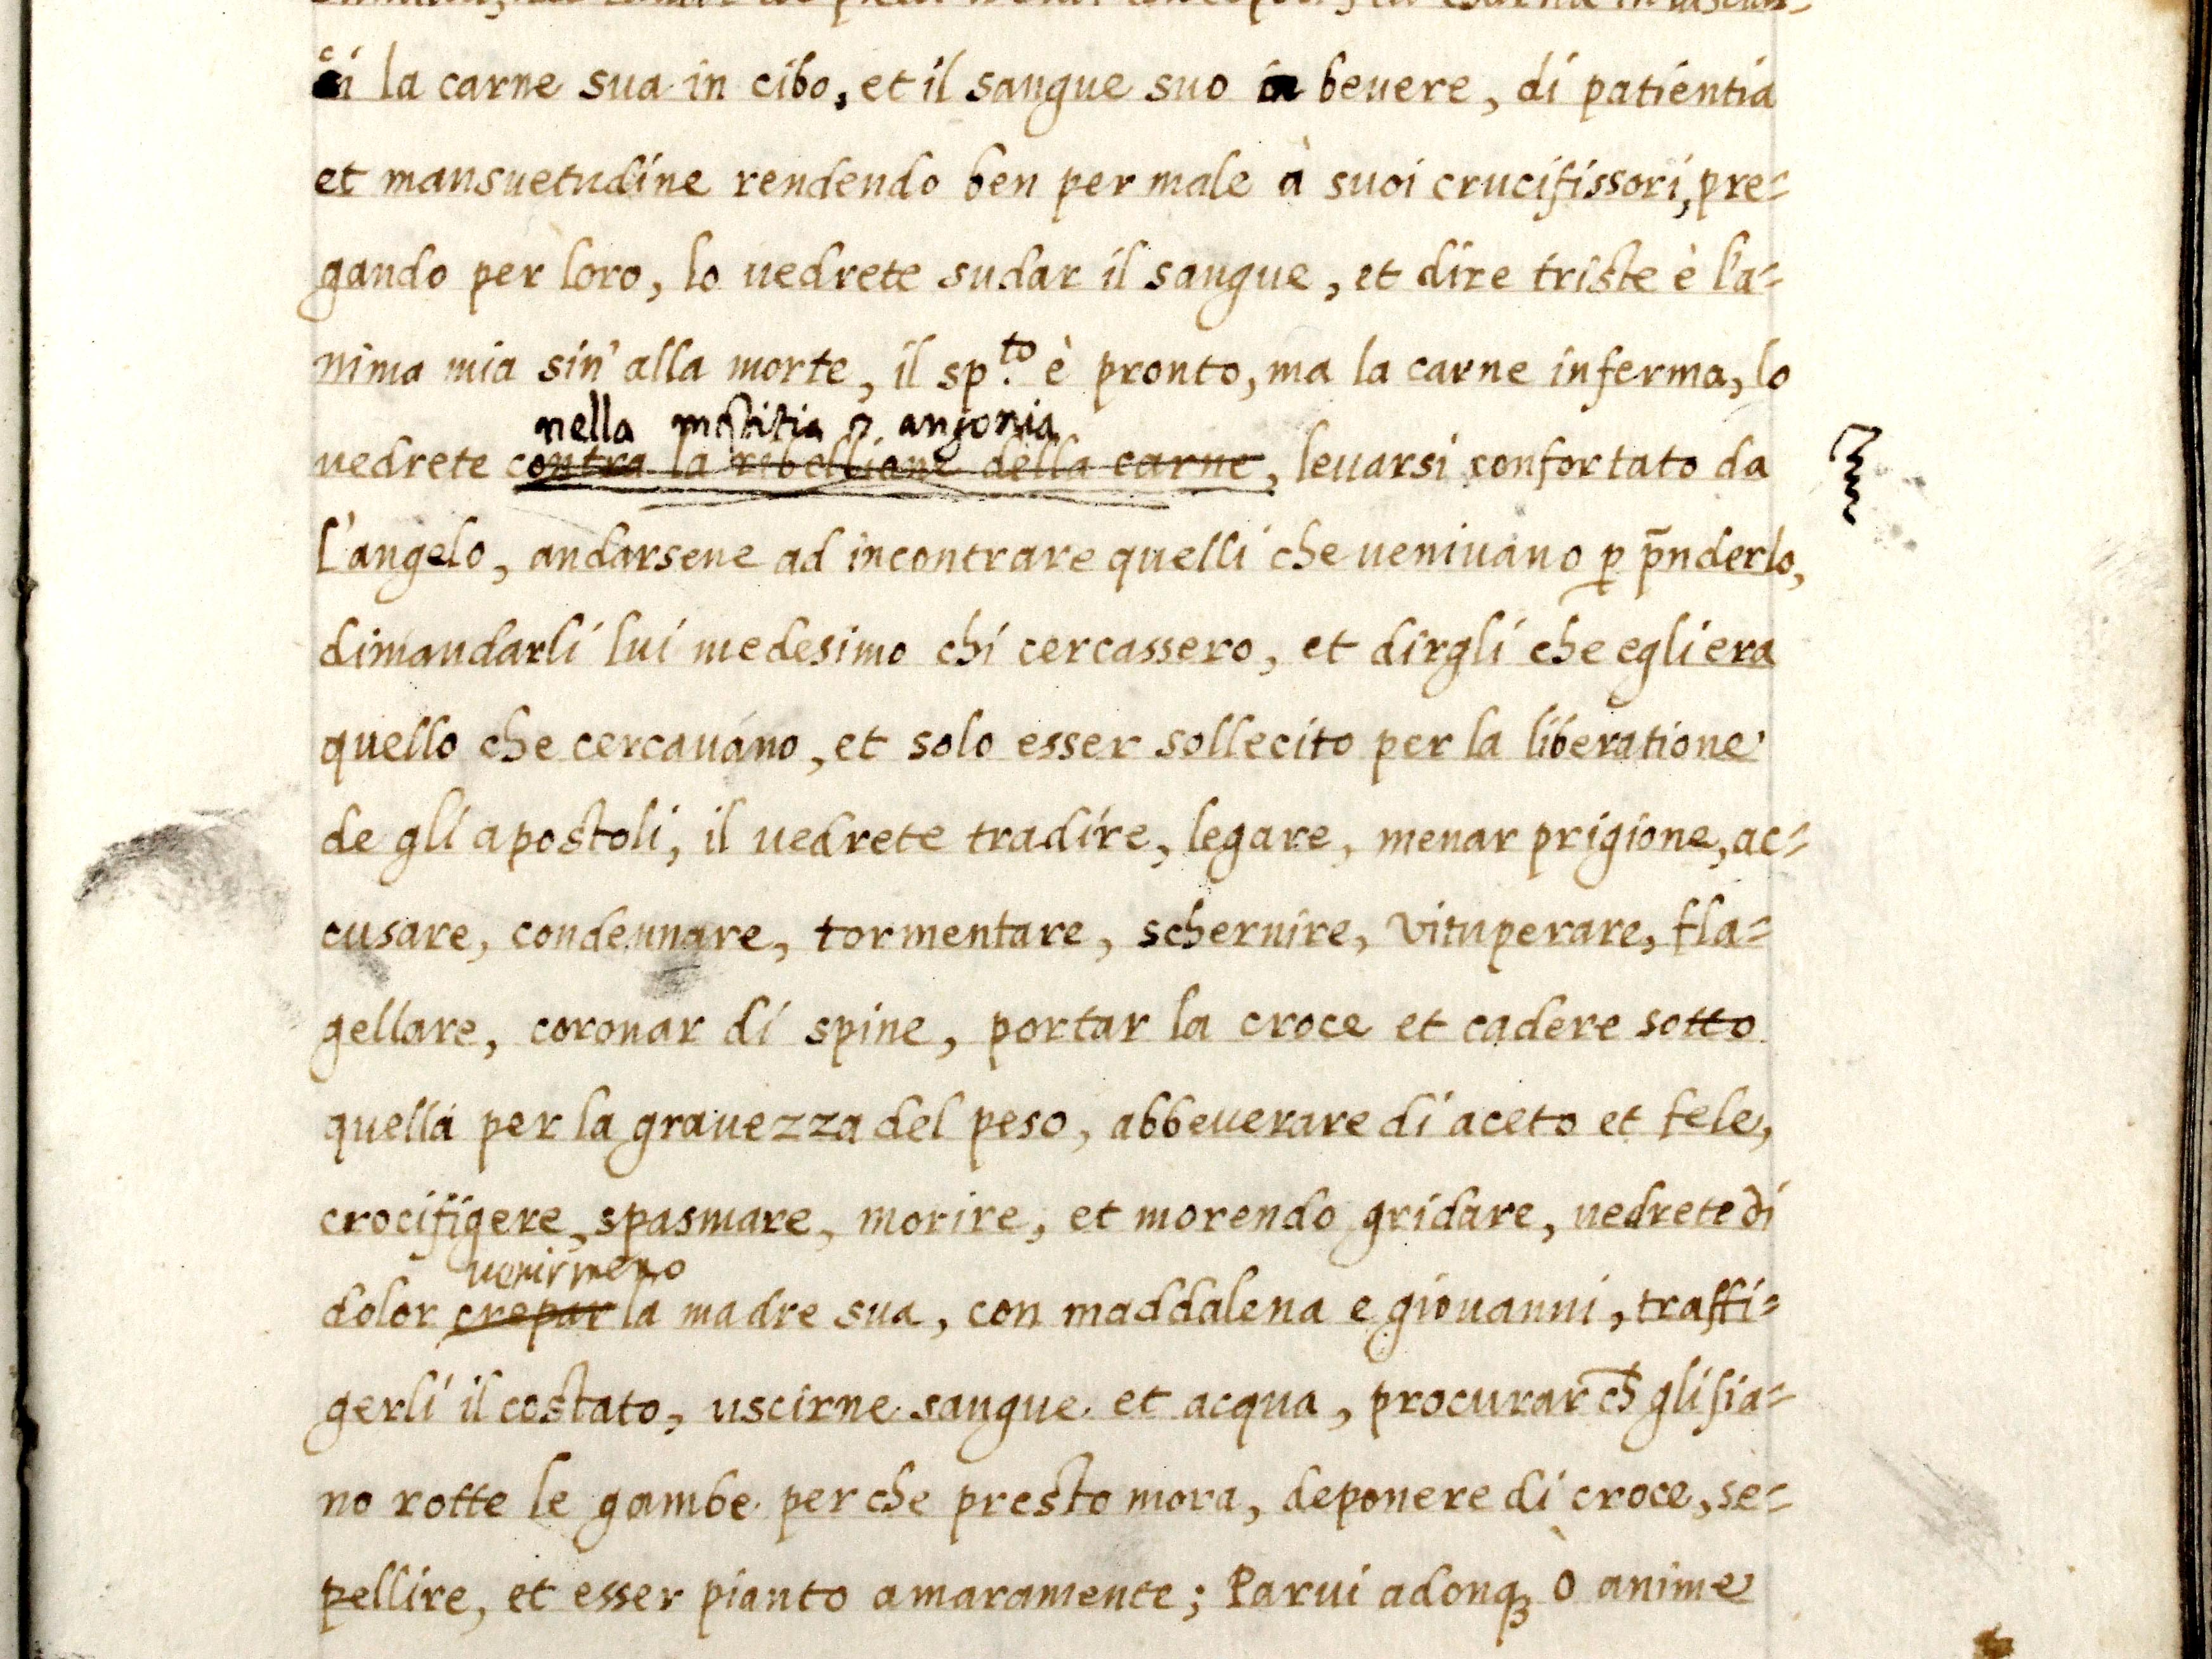 ci la carne sua in cibo, et il sangue suo in bevere, di patientia
et mansuetudine rendendo ben per male à suoi crucifissori, pre=
gando per loro, lo uedrete sudar il sangue, et dire triste è l'a=
nima mia sin' alla morte, il sp.to è pronto, ma la carne inferma, lo
nella mestitia angonia
uedrete contra la ribellione della carne, leuarsi confortato da
l'angelo, andarsene ad incontrare quelli cheueniuano ꝑ p̄nderlo,
dimandarli lui medesimo chi cercassero, et dirgli che egli era
quello che cercauano, et solo esser sollecito per la liberatione
de gli apostoli, il uedrete tradire, legare, menar prigione, ac=
cusare, condennare, tormentare, schernire, vituperare, fla=
gellare, coronar di spine, portar la croce et cadere sotto
quella per la grauezza del peso, abbeuerare di aceto et fele,
crocifigere, spasmare, morire, et morendo gridare, uedrete di
uenir meno
dolor crepar la madre sua, con maddalena e giouanni, traffi=
gerli il costato, uscirne sangue et acqua, procurar ch̄ gli sia=
no rotte le gambe perche presto mora, deponere di croce, se=
pellire, et esser pianto amaramente; Parui adonqꝫ ò anime